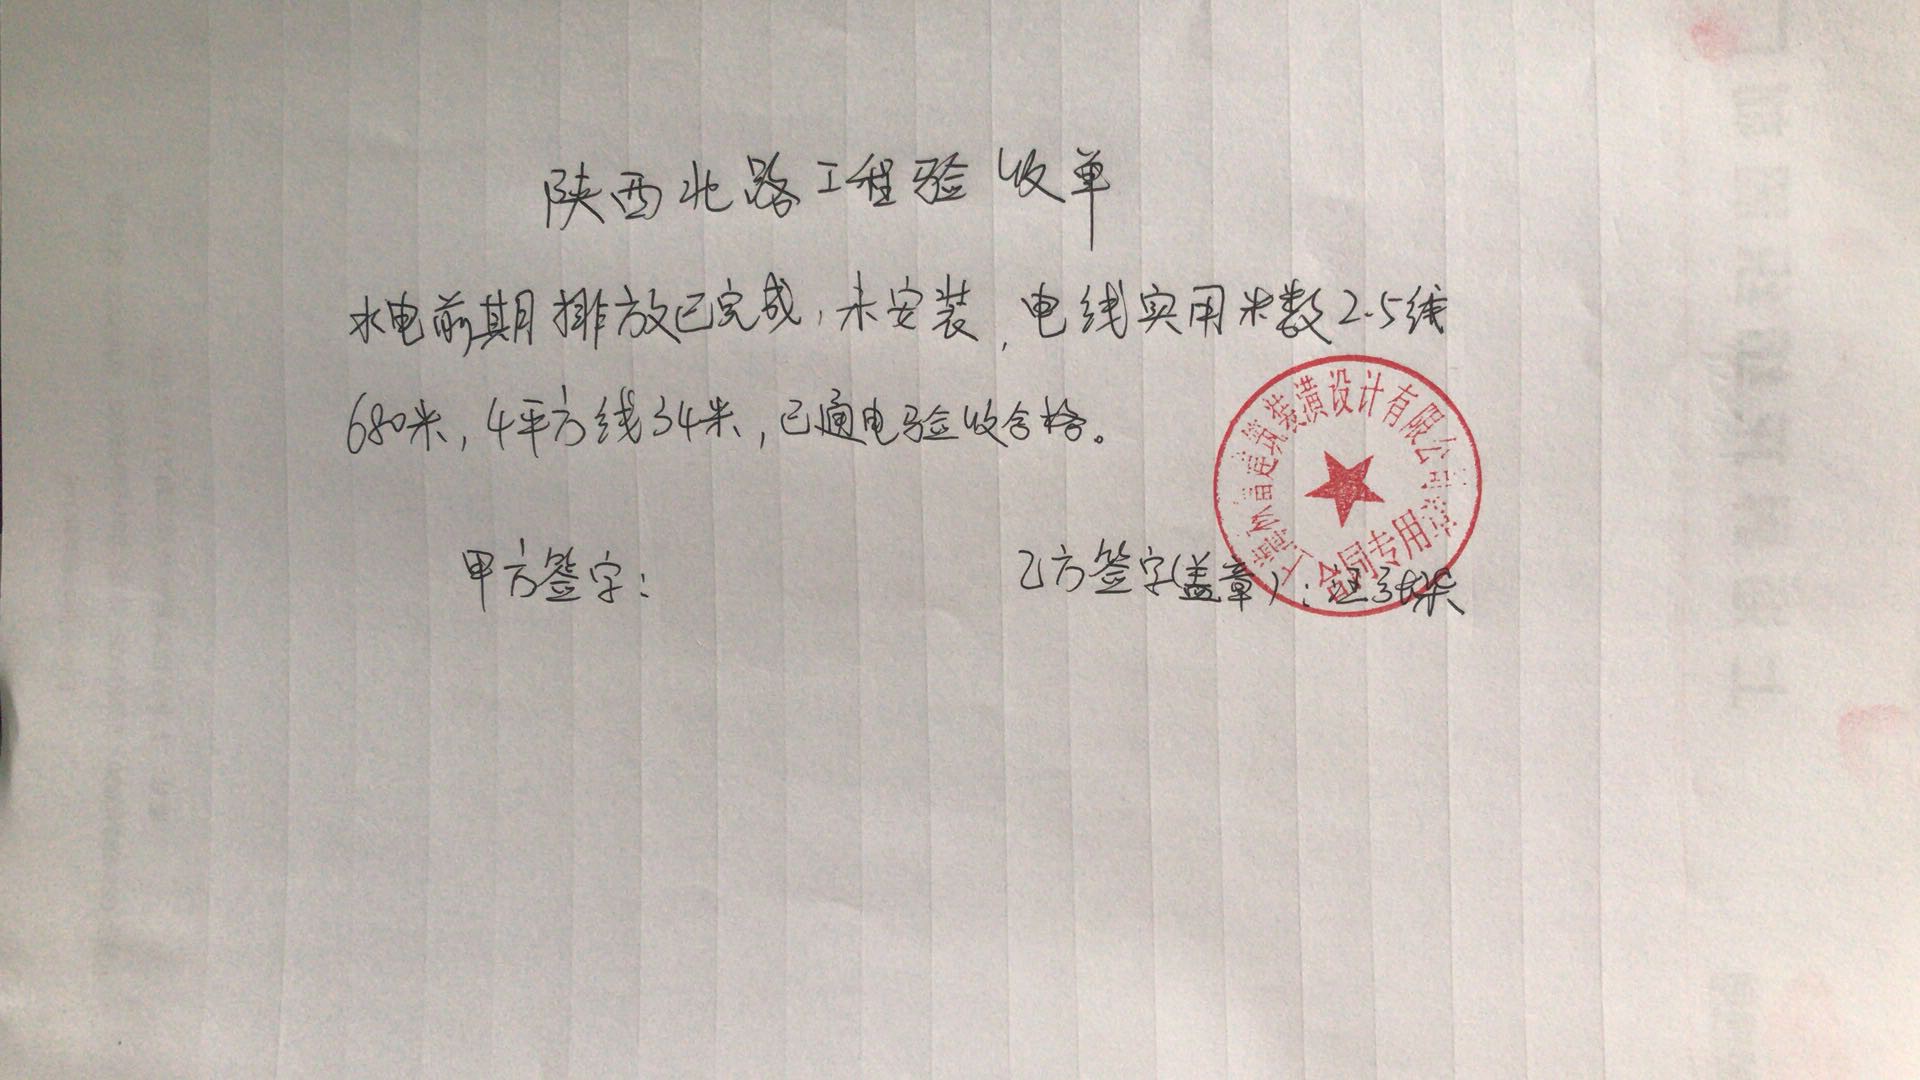 陕西北路工程验收单
水电前期排放已完成，未安装，电线实用米数2.5线
680米，4平方线34米，已通电验收合格。
甲方签字：
乙方签字(盖章)：
建筑装潢设计有限公司
合同专用章